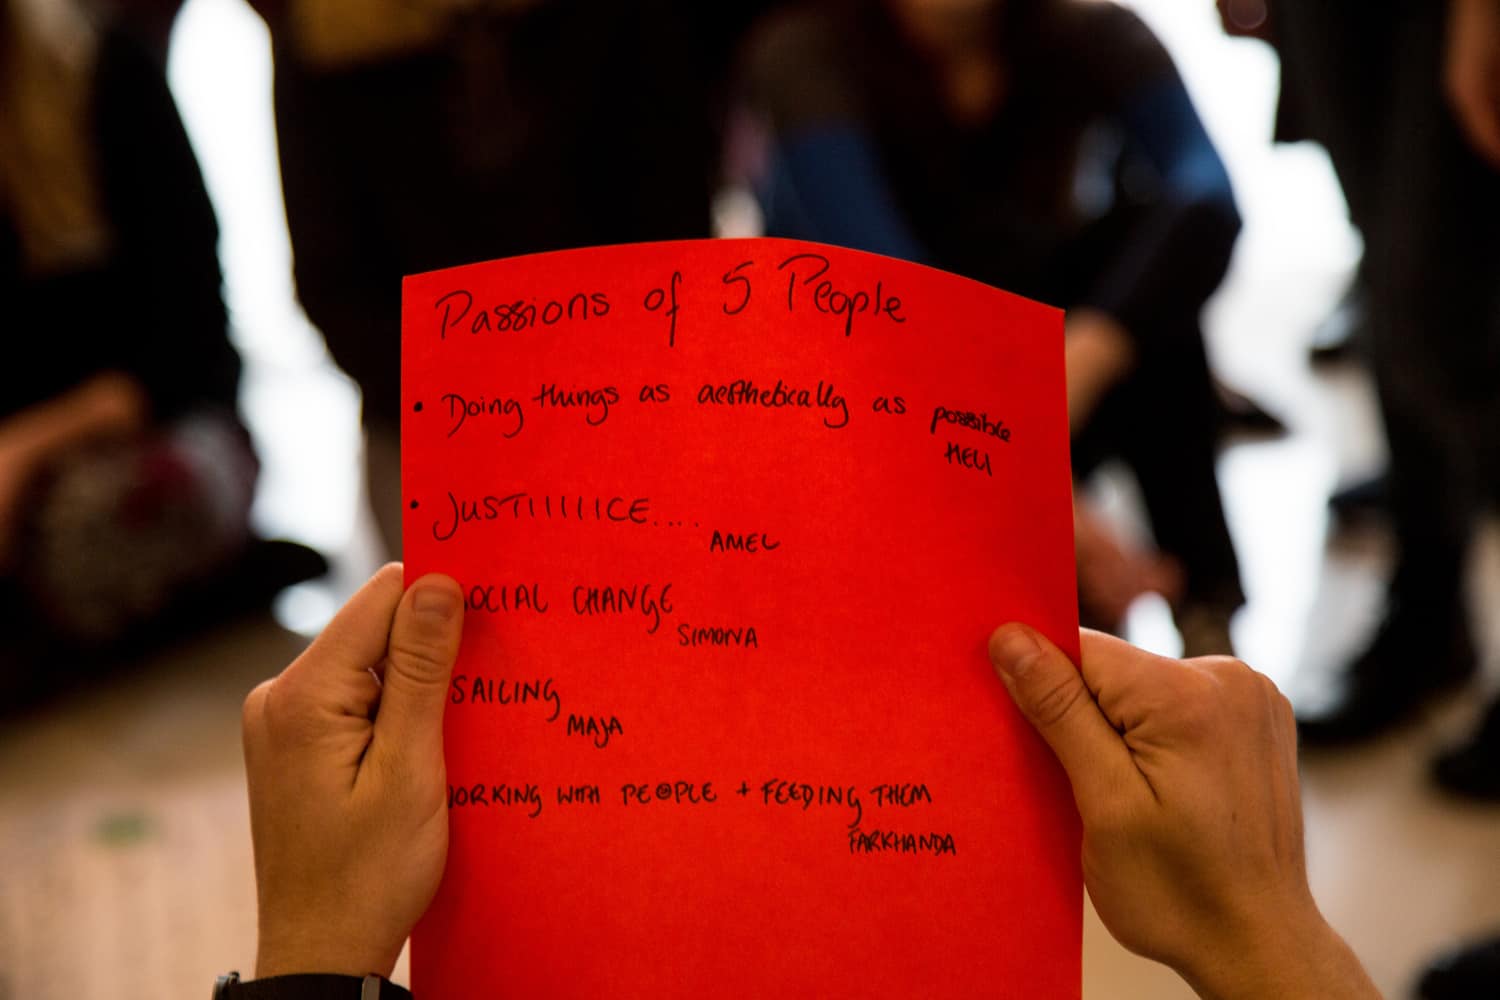 Passions of 5 People
• Doing things as aesthetically as possible
HELI
• JUSTIIIIIICE....
AMEL
SOCIAL CHANGE
SIMONA
SAILING
MAJA
WORKING WITH PEOPLE + FEEDING THEM
FARKHANDA